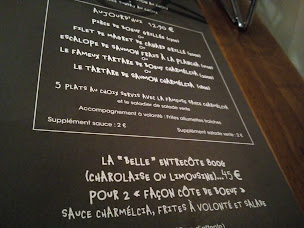 AUJOURD'HUI 12,90 €
PIÈCE DE BOEUF GRILLÉE
OU
FILET DE MAGRET DE CANARD GRILLÉ
OU
ESCALOPE DE SAUMON FRAIS À LA PLANCHA
OU
LE FAMEUX TARTARE DE BOEUF CHARMÉLCIA
OU
LE TARTARE DE SAUMON CHARMÉLCIA
5 PLATS AU CHOIX SERVIS AVEC LA FAMEUSE SAUCE CHARMÉLCIA
et le saladier de salade verte
Accompagnement à volonté : Frites allumettes fraîches
Supplément sauce : 2 €
Supplément salade verte : 2 €
LA "BELLE" ENTRECÔTE 800G
(CHAROLAISE OU LIMOUSINE)...45€
POUR 2 « FAÇON CÔTE DE BOEUF »
SAUCE CHARMÉLCIA, FRITES À VOLONTÉ ET SALADE